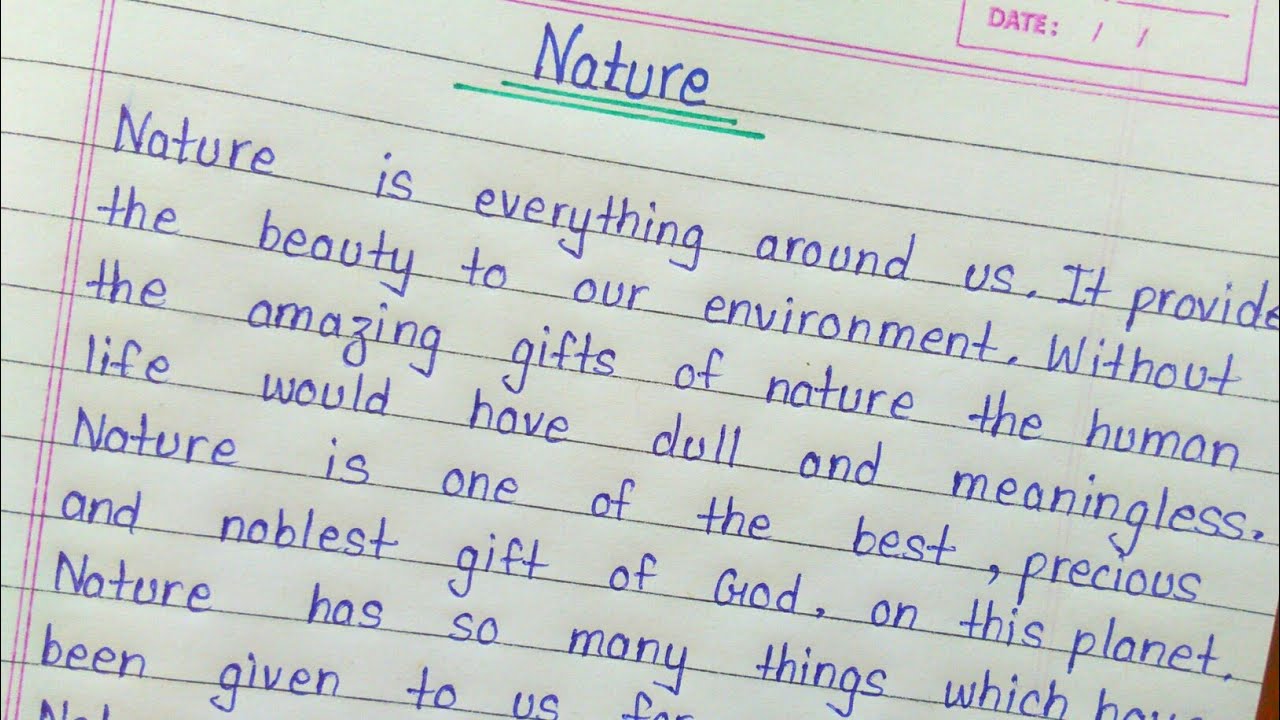 DATE: / /
Nature
Nature is everything around us. It provide
the beauty to our environment. Without
the amazing gifts of nature the human
life would have dull and meaningless.
Nature is one of the best, precious
and noblest gift of God, on this planet.
Nature has so many things which have
been given to us for